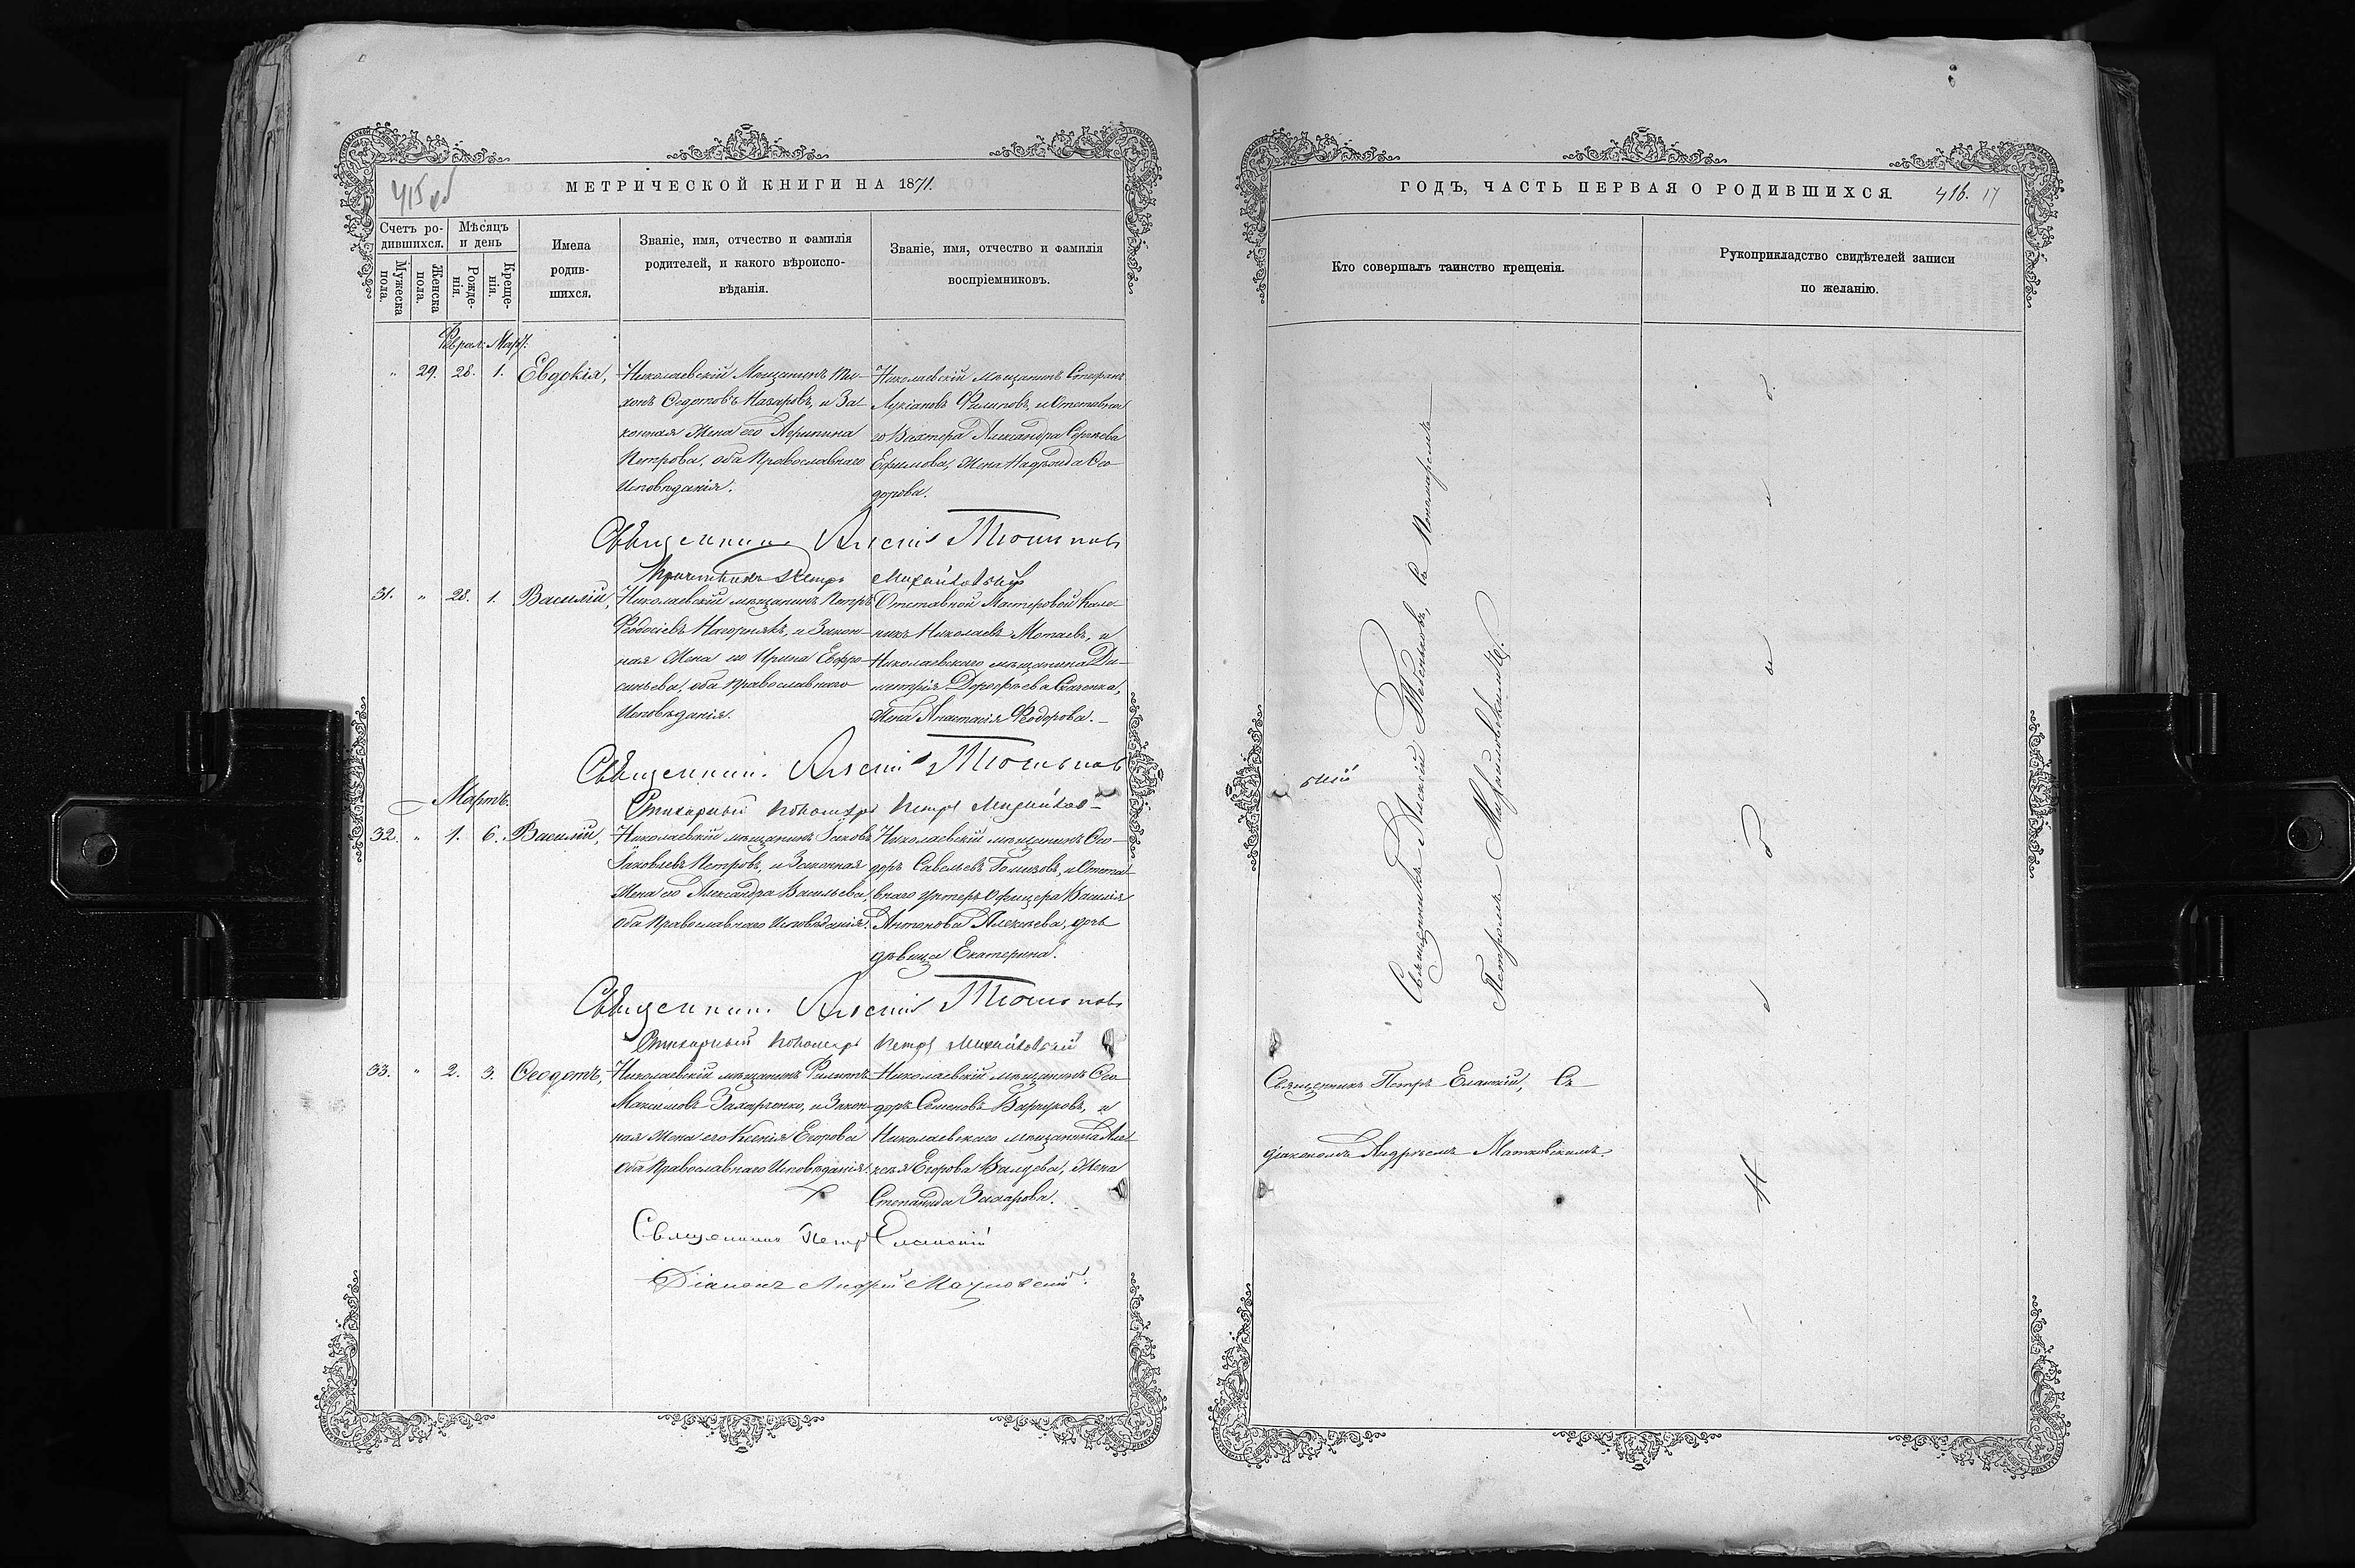 МЕТРИЧЕСКОЙ КНИГИ НА 1871.
415 об
Счетъ ро-
дившихся.
Мѣсяцъ
и день
Мужеска
пола.
Женска
пола.
Рожде-
нія.
Креще-
нія.
Имена
родив-
шихся.
Званіе, имя, отчество и фамилія
родителей, и какого вѣроиспо-
вѣданія.
Званіе, имя, отчество и фамилія
воспріемниковъ.
Феврал. Март.
" 29. 28. 1. Евдокія,
Николаевскій Мѣщанинъ Ти-
хонъ Ѳедотовъ Назаровъ, и За-
конная Жена его Агрипина
Петрова, оба Православнаго
Исповѣданія.
Николаевскій мѣщанинъ Стефанъ
Лукіановъ Филиповъ, и Отставна
го Вахтера Александра Сергѣева
Ефимова, Жена Надежда Ѳео-
дорова.
Священник Алексій
Причетникъ Петръ Михайловскій
31. " 28. 1. Василій,
Николаевскій мѣщанинъ Петръ
Феодосіевъ Нагорнякъ, и Закон-
ная Жена его Ирина Евфро-
синьева, оба Православнаго
Исповѣданія.
Отставной Мастеровой Кале-
никъ Николаевъ Мотаевъ, и
Николаевскаго мѣщанина Ди-
митрія Дорофѣева Скаченка,
Жена Анастасія Феодорова.
Священник. Алексій
Стихарный пономарь Петръ Михайлов-
скій
Мартъ.
32. " 1. 6. Василій,
Николаевскій мѣщанинъ Іаковъ
Іаковлевъ Петровъ, и Законная
Жена его Александра Васильева,
Оба Православнаго Исповѣданія.
Николаевскій мѣщанинъ Ѳео-
доръ Савельевъ Голиковъ, и Отста-
внаго Унтеръ Офицера Василія
Антонова Алексѣева, дочь
дѣвица Екатерина.
Священник. Алексій
Стихарный пономарь Петръ Михайловскій
33. " 2. 3. Ѳеодотъ,
Николаевскій мѣщанинъ Филипъ
Максимовъ Захарченко, и Закон-
ная Жена его Ксенія Егорова
Оба Православнаго Исповѣданія.
Николаевскій мѣщанинъ Ѳео-
доръ Семеновъ Варчуковъ, и
Николаевскаго мѣщанина Але-
ксѣя Егорова Валуева, Жена
Степанида Захарова.
Священникъ Петръ Еланскій
Діаконъ Андрей Матковскій.
ГОДЪ, ЧАСТЬ ПЕРВАЯ О РОДИВШИХСЯ.
416. 17
Кто совершалъ таинство крещенія.
Рукоприкладство свидѣтелей записи
по желанію.
Священникъ Алексій съ Пономаремъ
Петромъ Михайловскимъ.
Священникъ Петръ Еланскій, Съ
діакономъ Андреемъ Матковскимъ.